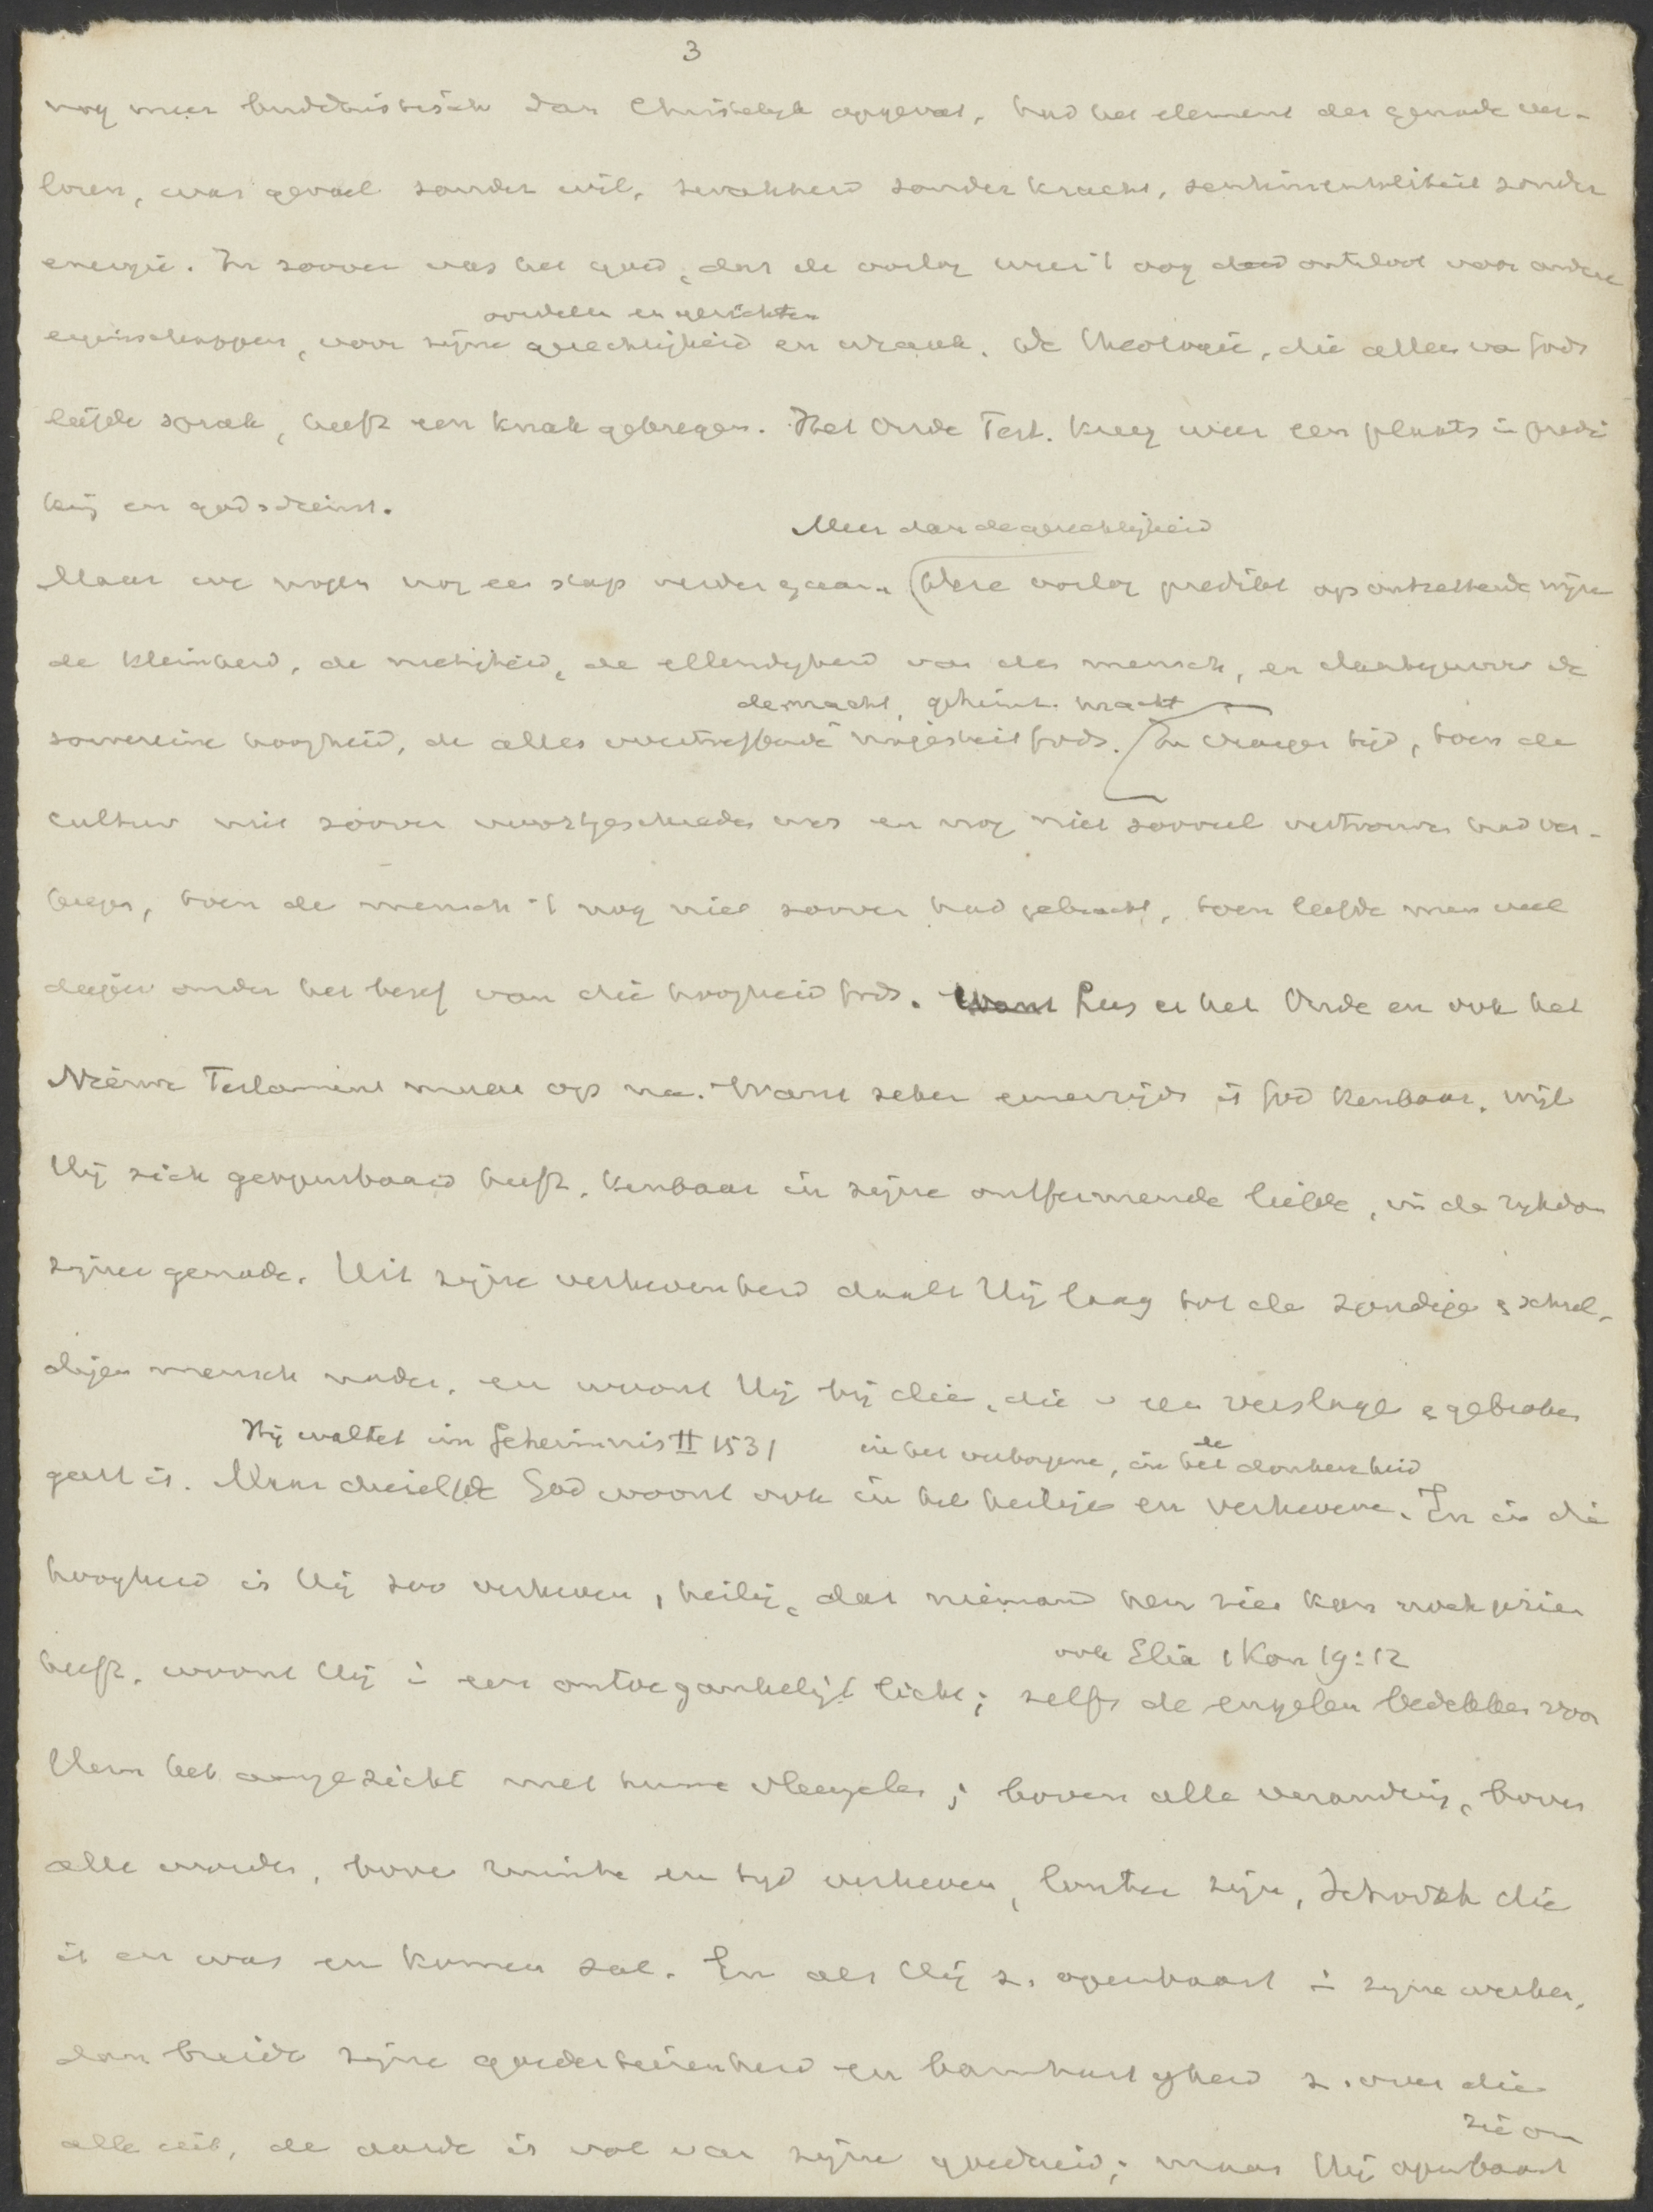 3
nog meer buddhistisch dan Christelijk opgevat, had het element der genade ver-
loren, was gevoel zonder wil, zwakheid zonder kracht, sentimentaliteit zonder
energie. In zoover was het goed, dat de oorlog weer 't oog deed ontsloot voor andere
oordeelen en gerichten
eigenschappen, voor zijne gerechtigheid en wraak. De Theologie, die alleen va Gods
liefde sprak, heeft een knak gekregen. Het Oude Test. kreeg weer een plaats in predi
king en godsdienst.
Meer dan de gerechtigheid
Maar we mogen nog een stap verder gaan. Deze oorlog predikt op ontzettende wijze
de kleinheid, de nietigheid, de ellendigheid van den mensch, en daartegenover de
de macht, geheimz. macht
souvereine hoogheid, de alles overtreffende majesteit Gods. In vroeger tijd, toen de
cultuur niet zoover voortgeschreden was en nog niet zooveel vertrouwen had ver-
kregen, toen de mensch 't nog niet zoover had gebracht, toen leefde men veel
dieper onder het besef van die hoogheid Gods. Want Lees er het Oude en ook het
Nieuwe Testament maar op na. Want zeker eenerzijds is God kenbaar, wijl
Hij zich geopenbaard heeft, kenbaar in zijne ontfermende liefde, in de rijkdom
zijner genade. Uit zijne verhevenheid daalt Hij laag tot de zondige & schul-
digen mensch neder, en woont Hij bij die, die v een verslagen & gebroken
Hij waltet im Geheimnis II 1531 in het verborgene, in het de donkerheid
geest is. Maar diezelfde God woont ook in het heilige en verhevene. En in die
hoogheid is Hij zoo verheven, heilig, dat niemand hem zien kan noch gezien
ook Elia 1 Kon 19:12
heeft, woont Hij i een ontoegankelijk licht; zelfs de engelen bedekken voor
Hem het aangezicht met hunne vleugelen; boven alle verandering, boven
alle worden, boven ruimte en tijd verheven, louter zijn, Jehovah die
is en was en komen zal. En als Hij z. openbaart i zijne werken,
dan breidt zijne goedertierenheid en barmhartigheid z. over die
zie om
alle uit, de aarde is vol van zijne goedheid; maar Hij openbaart